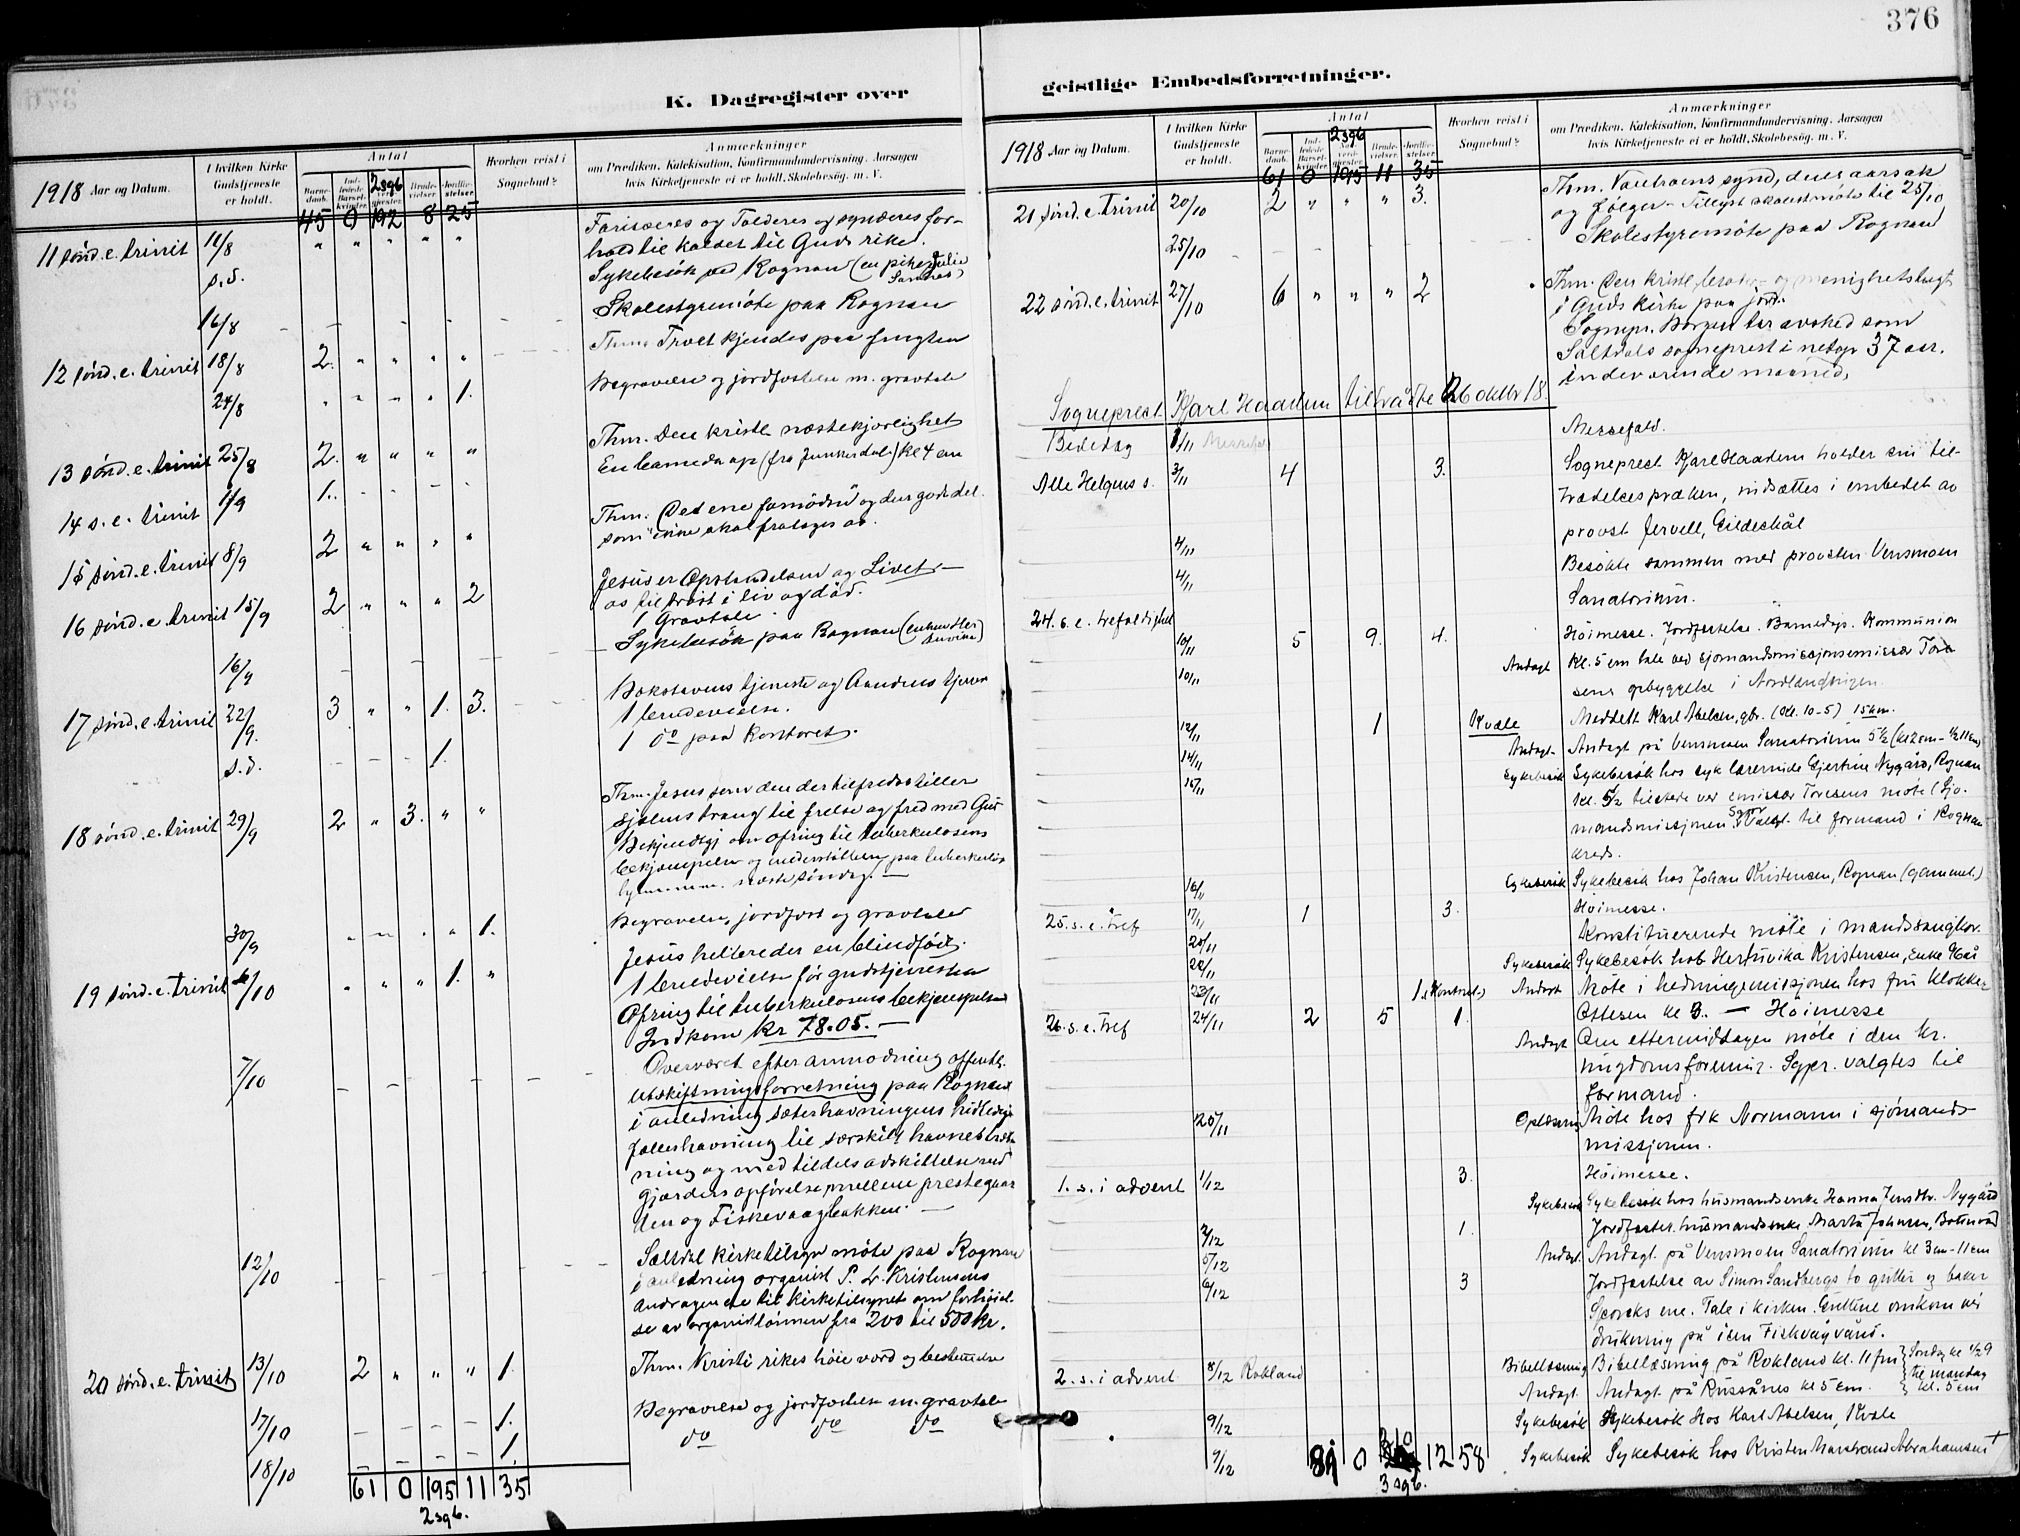 376
K. Dagregister over
geistlige Embedsforretninger.
1918 Aar og Datum.
I hvilken Kirke Gudstjeneste er holdt.
Antal
Barnedaab.
Indledede Barselkvinder.
Brudevielser.
Jordfæstelser.
Hvorhen reist i Sognebud?
Anmærkninger
om Prædiken, Katekisation, Konfirmandundervisning. Aarsagen
hvis Kirketjeneste ei er holdt. Skolebesøg. m. V.
2 sgb
45 0 192 8 25
11 sønd. e. trinit 11/8 " " " " " Farisæeres og Tolderes og synderes for-
hold til kaldet til Guds rike.
s.d. Sykebesøk ved Rognan (en pike Julie
16/8 Skolestyremöte paa Rognan
12 sønd. e. trinit 18/8 2. " " " " Thm. Troet kjendes paa frugten
24/8 1. Begravelse og jordfæstelse m. gravtale
13 sønd. e. trinit 25/8 2. " " " " Thm. Den kristl. næstekjærlighet
14 s. e. trinit 1/9 1. En barnedaap (fra Junkerdal) kl 4 em
15 sønd. e. trinit 8/9 2 " " " " Thm. Det ene fornödne og den gode del
som ikke skal fratages os.
16 sønd. e. trinit 15/9 2 " " " 2 Jesus er Opstandelsen og Livet
os til tröst i liv og död.
1 Gravtale.
16/9 Sykebesök paa Rognan
17 sønd. e. trinit 22/9. 3 " " 1. 3. Bokstavens tjeneste og Aandens tjen
1 brudevielse.
s.d. 1. 1 do paa kontoret.
18 sønd. e. trinit 29/9 2 " 3. " " Thm. Jesus som den der tilfredsstiller
sjælens trang til frelse og fred med Gud
Bekjendtgj om ofring til tuberkulosens
bekjæmpelse og understöttelse paa
næste söndag. —
30/9 " " " " 1. Begravelse, jordfæst og gravtale
19 sønd. e. trinit 6/10 " " " 1. " Jesus helbreder en blindfödt.
1 brudevielse för gudstjenesten
Ofring til tuberkulosens bekjæmpelse
Indkom kr 78.05. —
7/10 Overværet efter anmodning offentl.
utskiftningsforretning paa Rognan
i anledning sæterhavningens hidtidige
fælleshavning til særskilt havnestræk-
ning og med tildels adskillelse ved
gjærders opförelse mellem prestegaar
den og Fiskevaagbakken. —
12/10 Saltdal kirketilsyn möte paa Rognan
i anledning organist P. L. Kristensens
andragende til kirketilsynet om forhöiel-
se av organistlönnen fra 200 til 500 kr.
20 sønd. e. trinit 13/10 2 " " " 1. Thm. Kristi rikes höie værd og
17/10 1. Begravelse og jordfæstelse m. gravtale
18/10 1. do do do
61 0 195 11 35
2 sgb.
1918 Aar og Datum.
I hvilken Kirke Gudstjeneste er holdt.
Antal
Barnedaab.
Indledede Barselkvinder.
Brudevielser.
Jordfæstelser.
Hvorhen reist i Sognebud?
Anmærkninger
om Prædiken, Katekisation, Konfirmandundervisning. Aarsagen
hvis Kirketjeneste ei er holdt. Skolebesög. m. V.
2 sgb
61 0 195 11 35
21 sønd. e. trinit 20/10 2 " " " 3. Thm. Vantroens synd, dens aarsak
og fölger – Tillyst skolestmöte til 25/10
25/10 Skolestyremöte paa Rognan
22 sønd. e. trinit 27/10 6 " " " 2 Thm. Den kristl. og menighetstugt
i Guds kirke paa jord.
Sognepr. Borgen tar avsked som
Saltdals sogneprest i netop 37 aar.
indeværende maaned.
Sogneprest Karl Haadem tiltrådte 26 oktbr 18.
Bededag 1/11 Messefald.
Alle Helgens s. 3/11 4 3. Sogneprest Karl Haadem holder sin til-
trædelsespræken, indsættes i embedet av
provst Jervell, Gildeskål
4/11 Besökte sammen med provsten Vensmoen
4/11 Sanatorium.
24. s. e. trefoldighet
10/11 5 9. 4. Höimesse. Jordfæstelse. Barnedåp. Kommunion
10/11 Andagt Kl. 5 em tale ved sjömandsmissjonsemissær Tore
sens opbyggelse i Nordlandsringen.
12/11 1 Kvæle Meddelt Karl Abelsen, gbr. (kl. 10-5) 15 km.
14/11 Andagt Andagt på Vensmoen Sanatorium 5½ (kl 2 em – ½ 11 em)
15/11 Sykebesök Sykebesök hos syk lærerinde Gjertine Nygård, Rognan
Kl. 5½ tilstede ved emissær Toresens möte (Sjö-
mandsmissjonen) Sgpr. valgt til formand i Rognan
kreds.
16/11 Sykebesök Sykebesök hos Johan Kristensen, Rognan (gammel.)
25. s. e. tref 17/11 1 3. Höimesse.
20/11 Konstituerende möte i mandssangkor.
22/11 Sykebesök Sykebesök hos Hertuvika Kristensen, Enke
23/11 1 (Kontoret.) Andagt Möte i hedningemissjonen hos fru Klokker
26. s. e. tref 24/11 2 5 1. Ottesen kl 3. — Höimesse
Andagt Om ettermiddagen möte i den kr.
ungdomsforening. Sgpr. valgtes til
formand.
25/11 Oplæsning Möte hos frk Normann i sjömands-
missjonen.
1. s. i advent 1/12 3. Höimesse.
Sykebesök Sykebesök hos husmandsenke Hanna Jensdtr. Nygård
2/12 1. Jordfæstet husmandsenke Marta Johnsen, Botnvad
5/12 Andagt. Andagt på Vensmoen Sanatorium kl 3 em – 11 em
6/12 3 Jordfæstelse av Simon Sandbergs to gutter og baker
ene. Tale i kirken. Guttene omkom ved
drukning på isen Fiskvågvand.
2. s. i advent 8/12 Rokland Bibellæsning Bibellæsning på Rokland kl. 11 fm } Söndag kl ½ 9
Andagt. Andagt på Russånes kl 5 em. } til mandag kl. 5 em
9/12 Sykebesök Sykebesök hos Karl Abelsen, Kvæle
9/12 Sykebesök Sykebesök hos Kristen Marstrand Abrahamsen †
81 0 210 12 58
3 sgb.